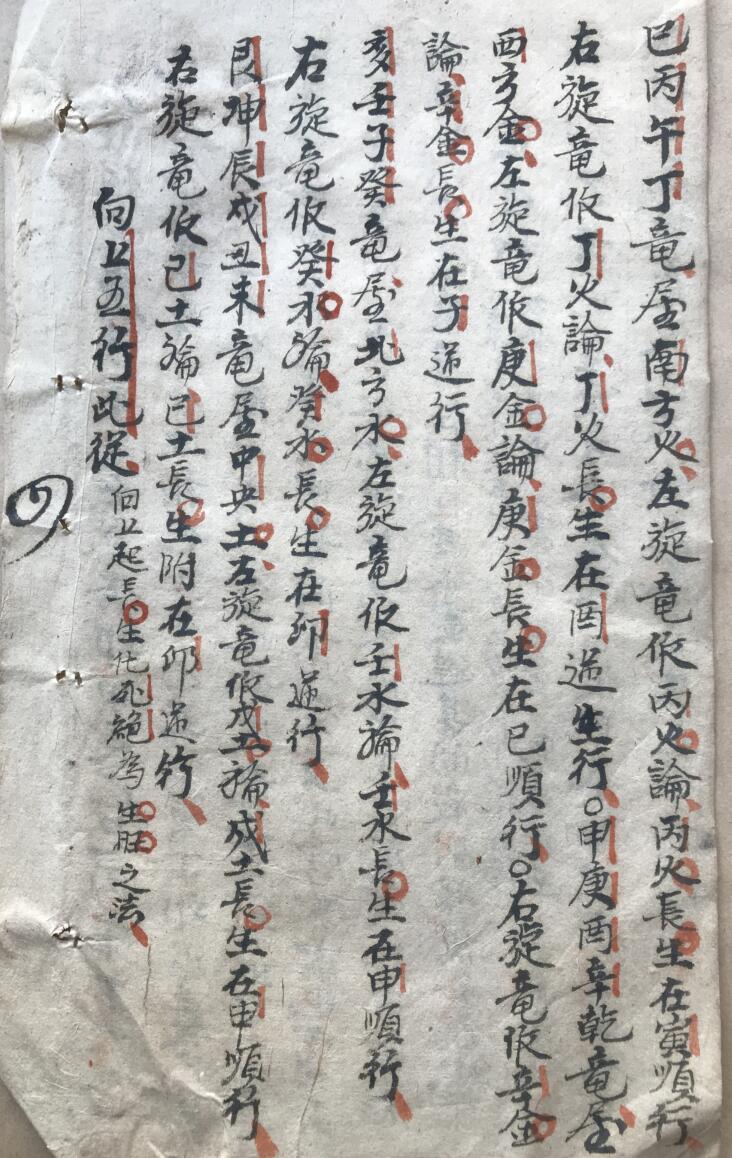 巳丙午丁竜屋南方火左旋竜作丙火論丙火長生在寅順行
右旋竜作丁火論丁火長生在酉逆生行○申庚酉辛乾竜屋
西方金左旋竜作庚金論庚金長生在巳順行○右旋竜作辛金
論辛金長生在子逆行
亥壬子癸竜屋北方水左旋竜作壬水論壬水長生在申順行
右旋竜作癸水論癸水長生在卯逆行
艮坤辰戌丑未竜屋中央土左旋竜作戊土論戊土長生在申順行
右旋竜作己土論己土長生附在卯逆行
向上五行此從向上起長生化死絕為生旺之法